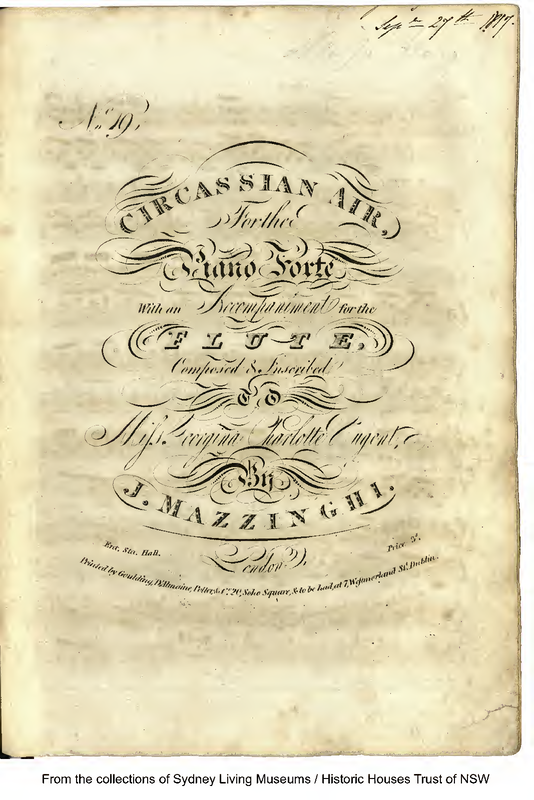 Sepr. 27th 1817.
No. 19.
CIRCASSIAN AIR,
For the
Piano Forte
With an Accompaniment for the
FLUTE,
Composed & Inscribed
TO
Miss Georgina Charlotte Nugent,
By
J. MAZZINGHI.
Ent. Sta. Hall.
London
Price 3s.
Printed by Goulding, D'Almaine, Potter & Co. 20, Soho Square, & to be had at 7, Westmorland St. Dublin.
From the collections of Sydney Living Museums / Historic Houses Trust of NSW